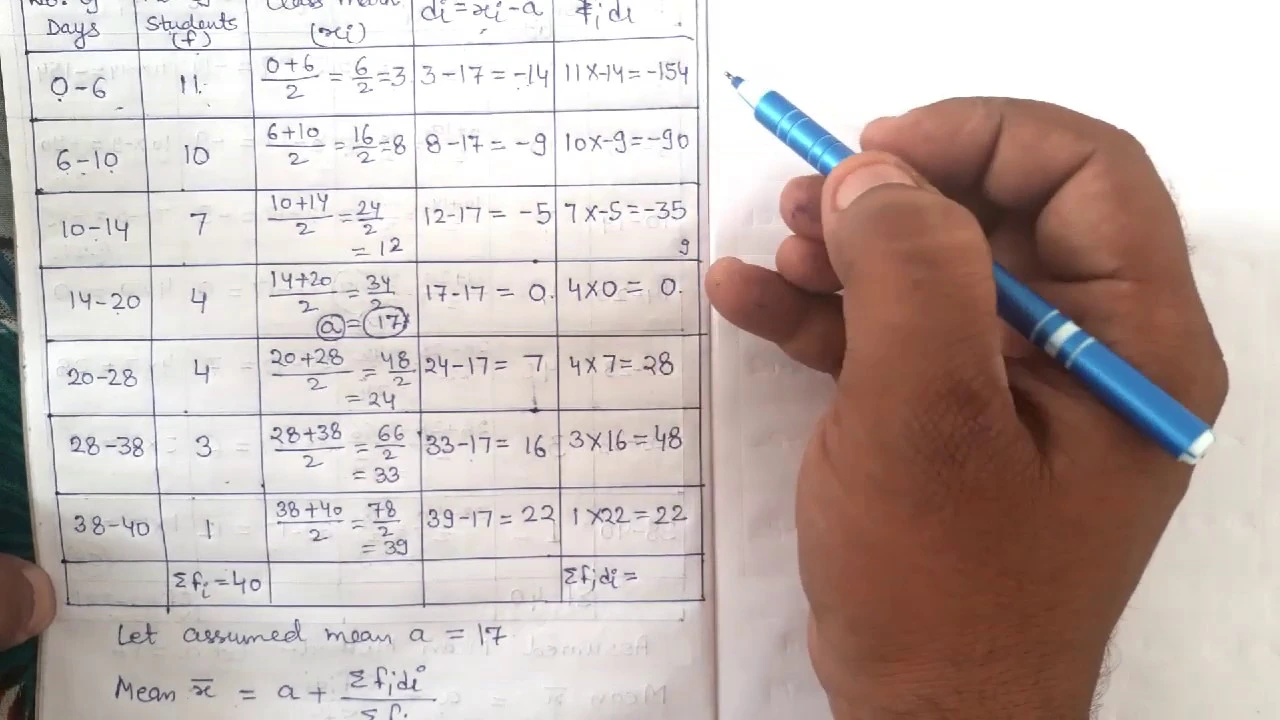 No. of Students Class Mark di = xi - a fidi
Days (f) (xi)
0-6 11 0+6/2 = 6/2 = 3 3-17 = -14 11×-14 = -154
6-10 10 6+10/2 = 16/2 = 8 8-17 = -9 10×-9 = -90
10-14 7 10+14/2 = 24/2 12-17 = -5 7×-5 = -35
= 12 9
14-20 4 14+20/2 = 34/2 17-17 = 0. 4×0 = 0.
a = 17
20-28 4 20+28/2 = 48/2 24-17 = 7 4×7 = 28
= 24
28-38 3 28+38/2 = 66/2 33-17 = 16 3×16 = 48
= 33
38-40 1 38+40/2 = 78/2 39-17 = 22 1×22 = 22
= 39
Σfi = 40 Σfidi =
Let assumed mean a = 17
Mean x̄ = a + Σfidi/Σfi